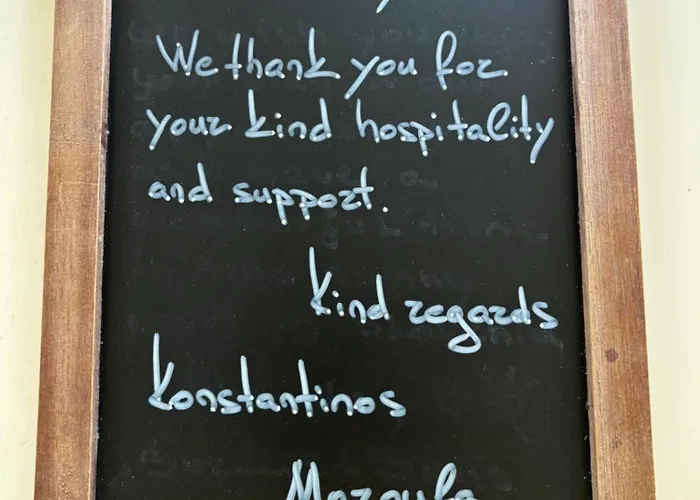 We thank you for
your kind hospitality
and support.
Kind regards
Konstantinos